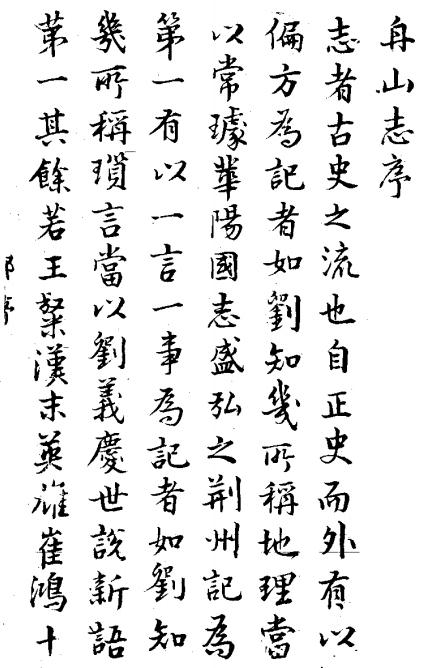 舟山志序
志者古史之流也自正史而外有以
偏方為記者如劉知幾所稱地理當
以常璩華陽國志盛弘之荆州記為
第一有以一言一事為記者如劉知
幾所稱瑣言當以劉義慶世說新語
第一其餘若王粲漢末英雄崔鴻十